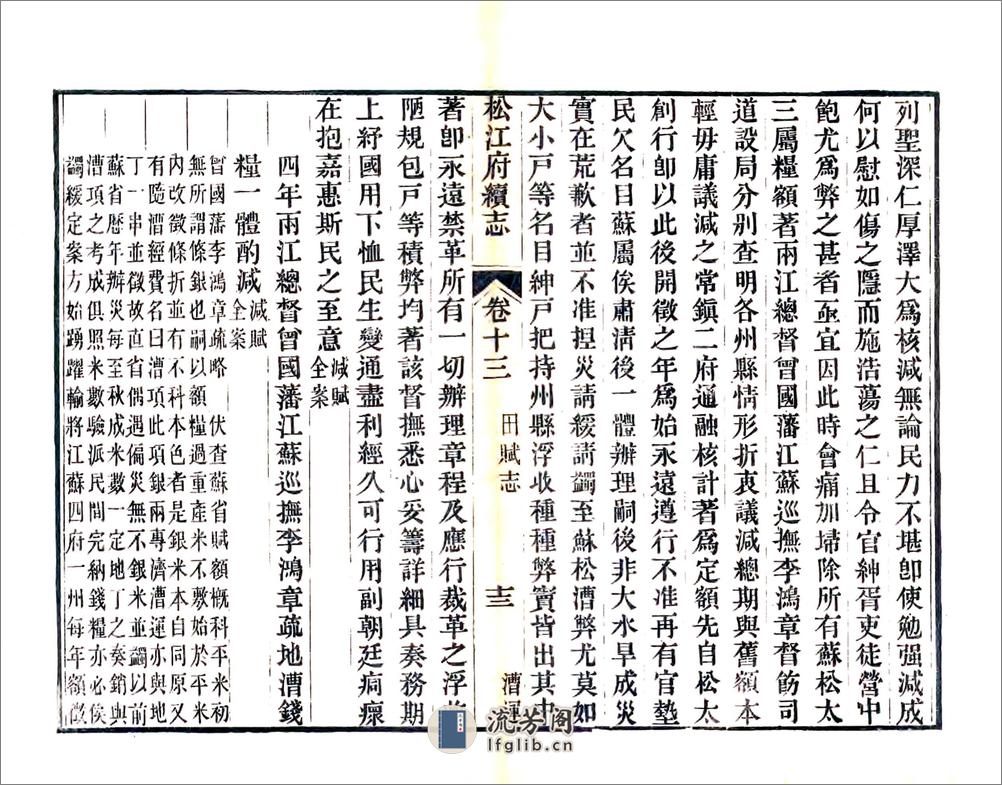 列聖深仁厚澤大爲核減無論民力不堪卽使勉强減成
何以慰如傷之隱而施浩蕩之仁且令官紳胥吏徒營中
飽尤爲弊之甚者亟宜因此時會痛加埽除所有蘇松太
三屬糧額著兩江總督曾國藩江蘇巡撫李鴻章督飭司
道設局分别查明各州縣情形折衷議減總期與舊額本
輕毋庸議減之常鎭二府通融核計著爲定額先自松太
創行卽以此後開徵之年爲始永遠遵行不准再有官墊
民欠名目蘇屬俟肅淸後一體辦理嗣後非大水旱成災
實在荒歉者並不准捏災請緩請蠲至蘇松漕弊尤莫如
大小戸等名目紳戸把持州縣浮收種種弊竇皆出其中
松江府續志 卷十三 田賦志 漕運
著卽永遠禁革所有一切辦理章程及應行裁革之浮收
陋規包戸等積弊均著該督撫悉心妥籌詳細具奏務期
上紓國用下恤民生變通盡利經久可行用副朝廷痌瘝
在抱嘉惠斯民之至意減賦全案
四年兩江總督曾國藩江蘇巡撫李鴻章疏地漕錢
糧一體酌減減賦全案
曾國藩李鴻章疏略 伏查蘇省賦額槪科平米初
無所謂條銀也嗣以額糧過重產米不敷始於平米
內改徵條折並有不科本色者是銀米本自同原又
有隨漕經費名曰漕項此項銀兩專濟漕運亦與地
丁一串並徵故直省偶遇偏災無不銀米並蠲以前
蘇省歷年辦災每至秋成米數一定地丁之奏銷與
漕項之考成俱照米數驗派民間完納錢糧亦必俟
蠲緩定案方始踴躍輸將江蘇四府一州每年額徵
流芳阁
lfglib.cn